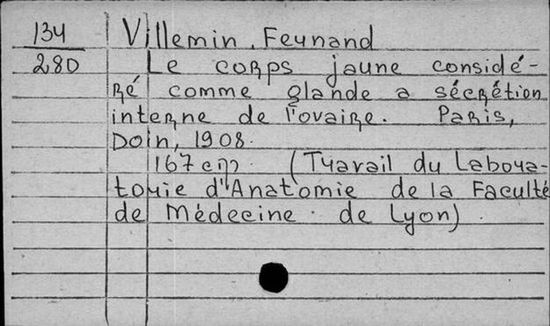 134 Villemin, Fernand
280 Le corps jaune considé-
ré comme glande a sécrétion
interne de l'ovaire. Paris,
Doin, 1908.
167 cm. (Travail du Labora-
toire d'Anatomie de la Faculté
de Médecine de Lyon).